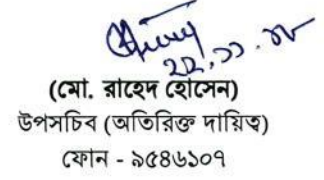 ২২.১১.১৮
(মো. রাহেদ হোসেন)
উপসচিব (অতিরিক্ত দায়িত্ব)
ফোন - ৯৫৪৬১০৭